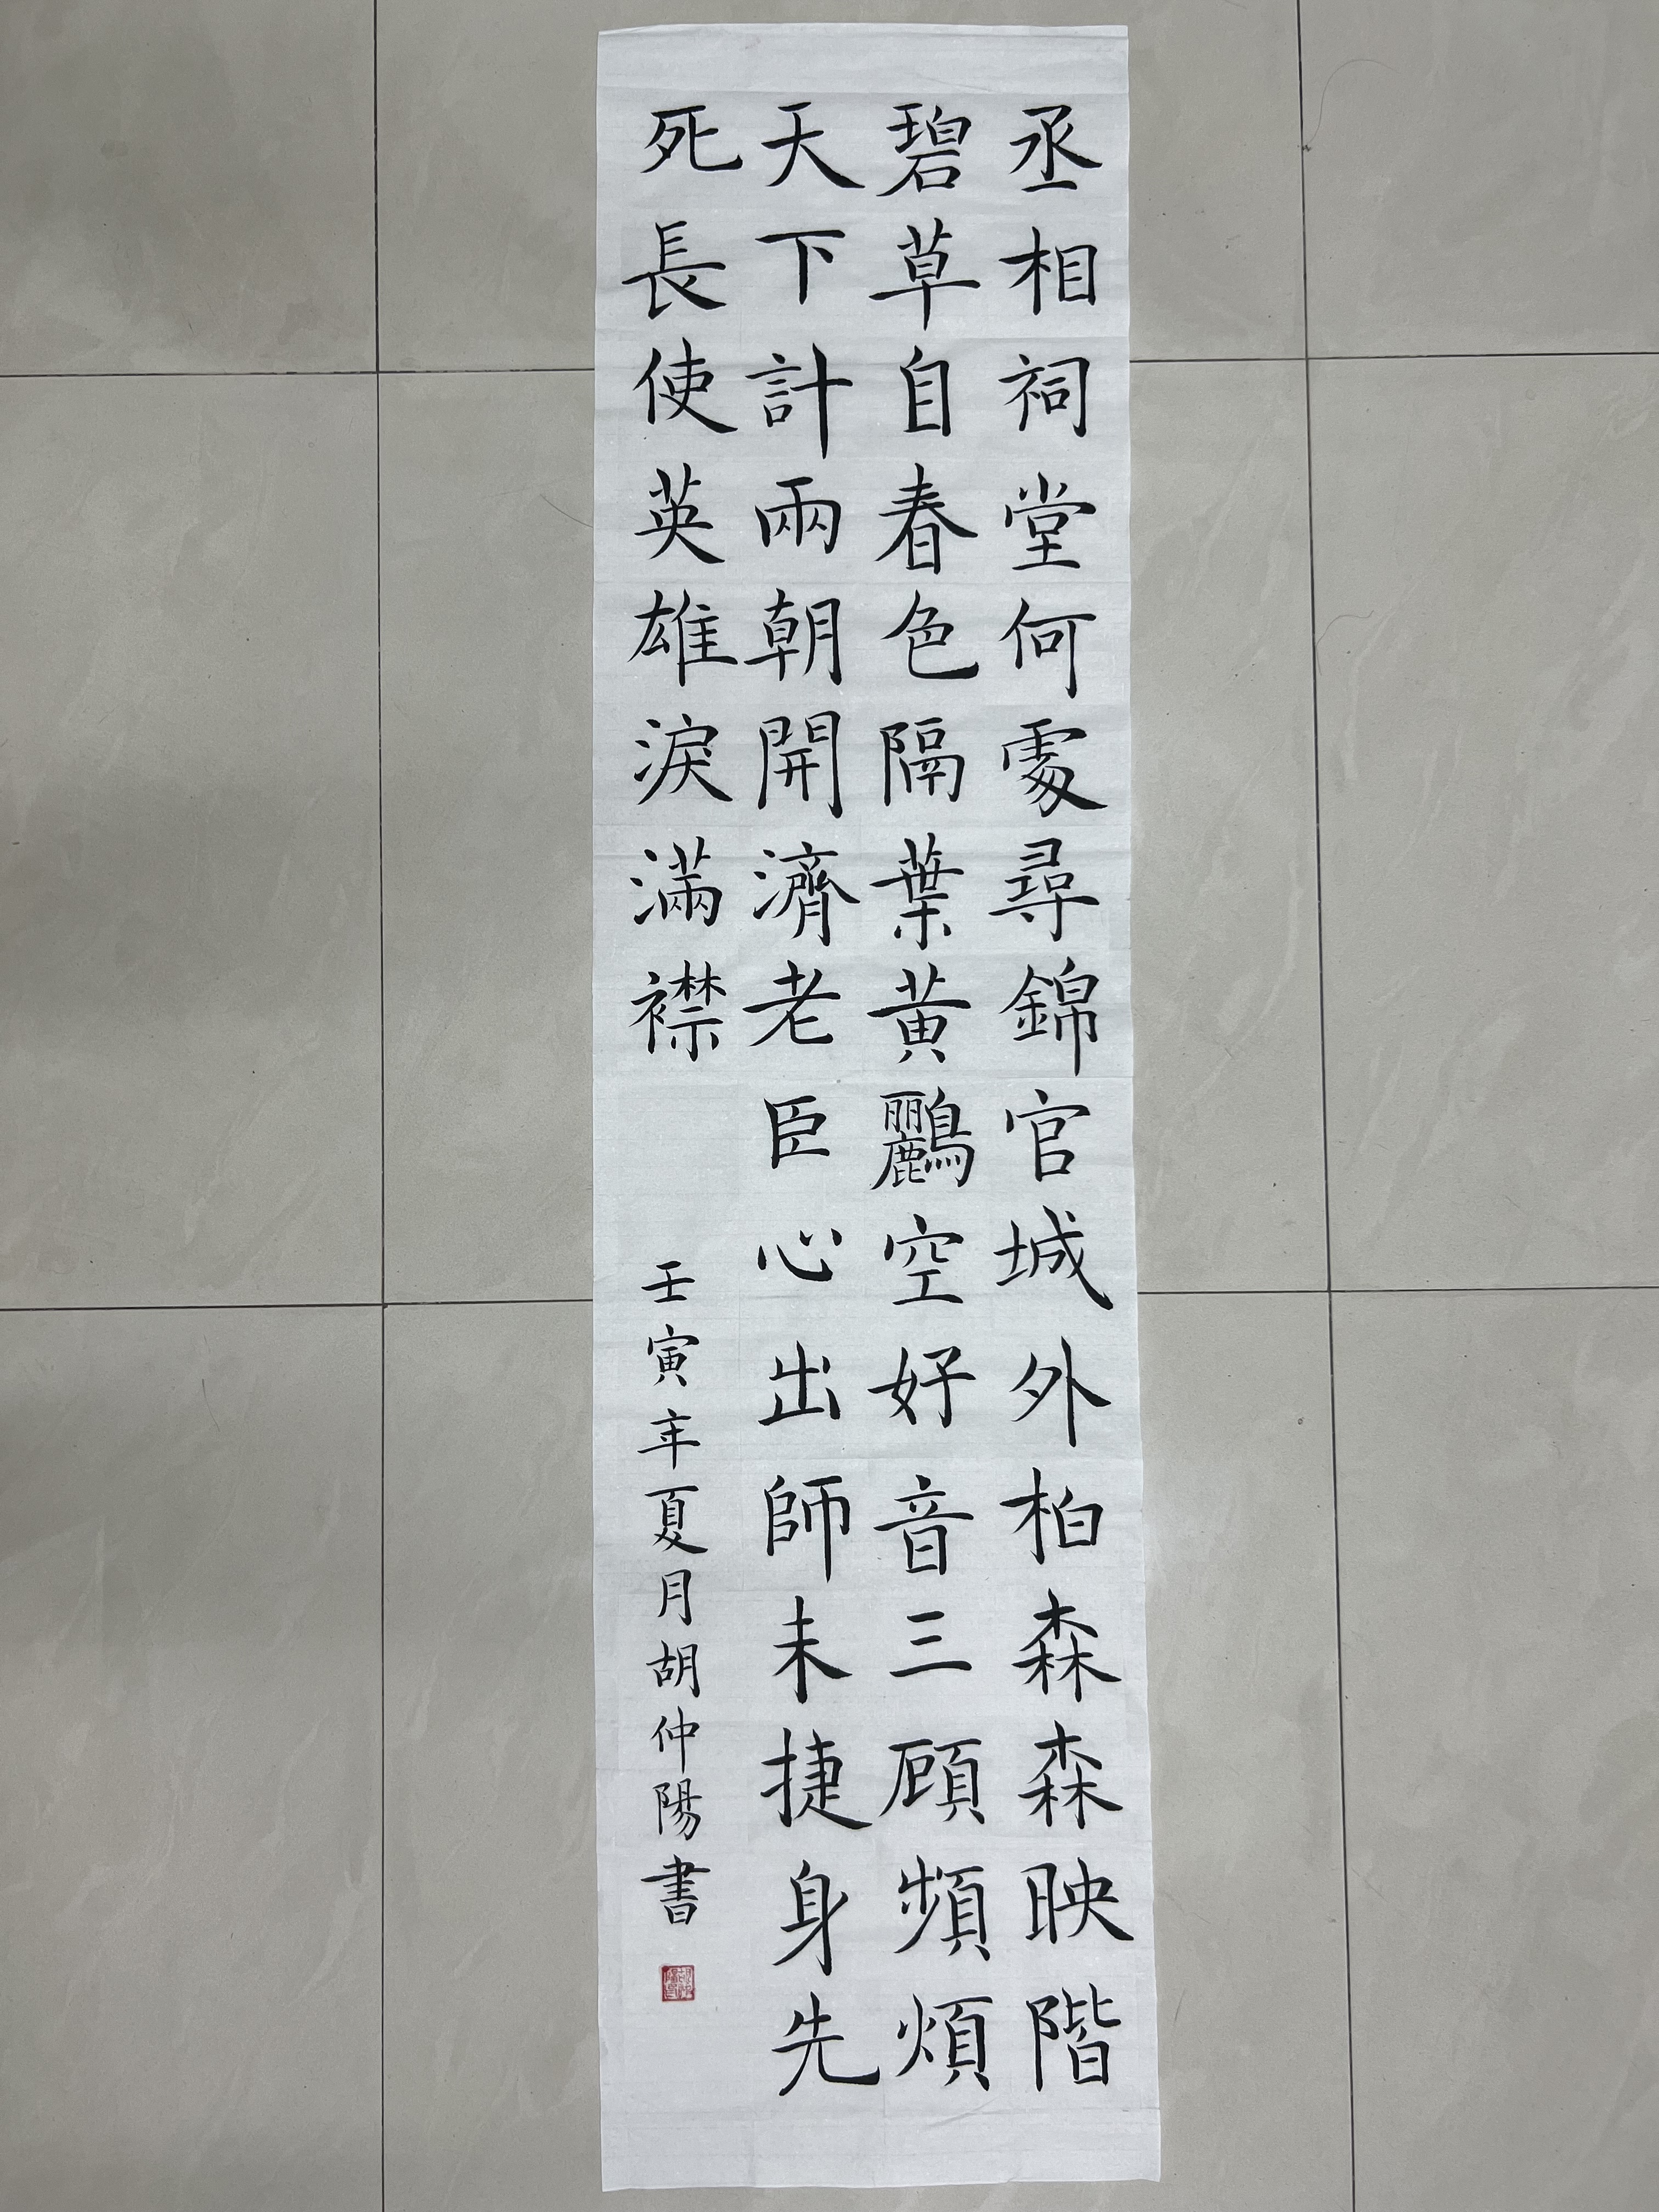 丞相祠堂何處尋錦官城外柏森森映階
碧草自春色隔葉黃鸝空好音三顧頻煩
天下計兩朝開濟老臣心出師未捷身先
死長使英雄淚滿襟
壬寅年夏月胡仲陽書